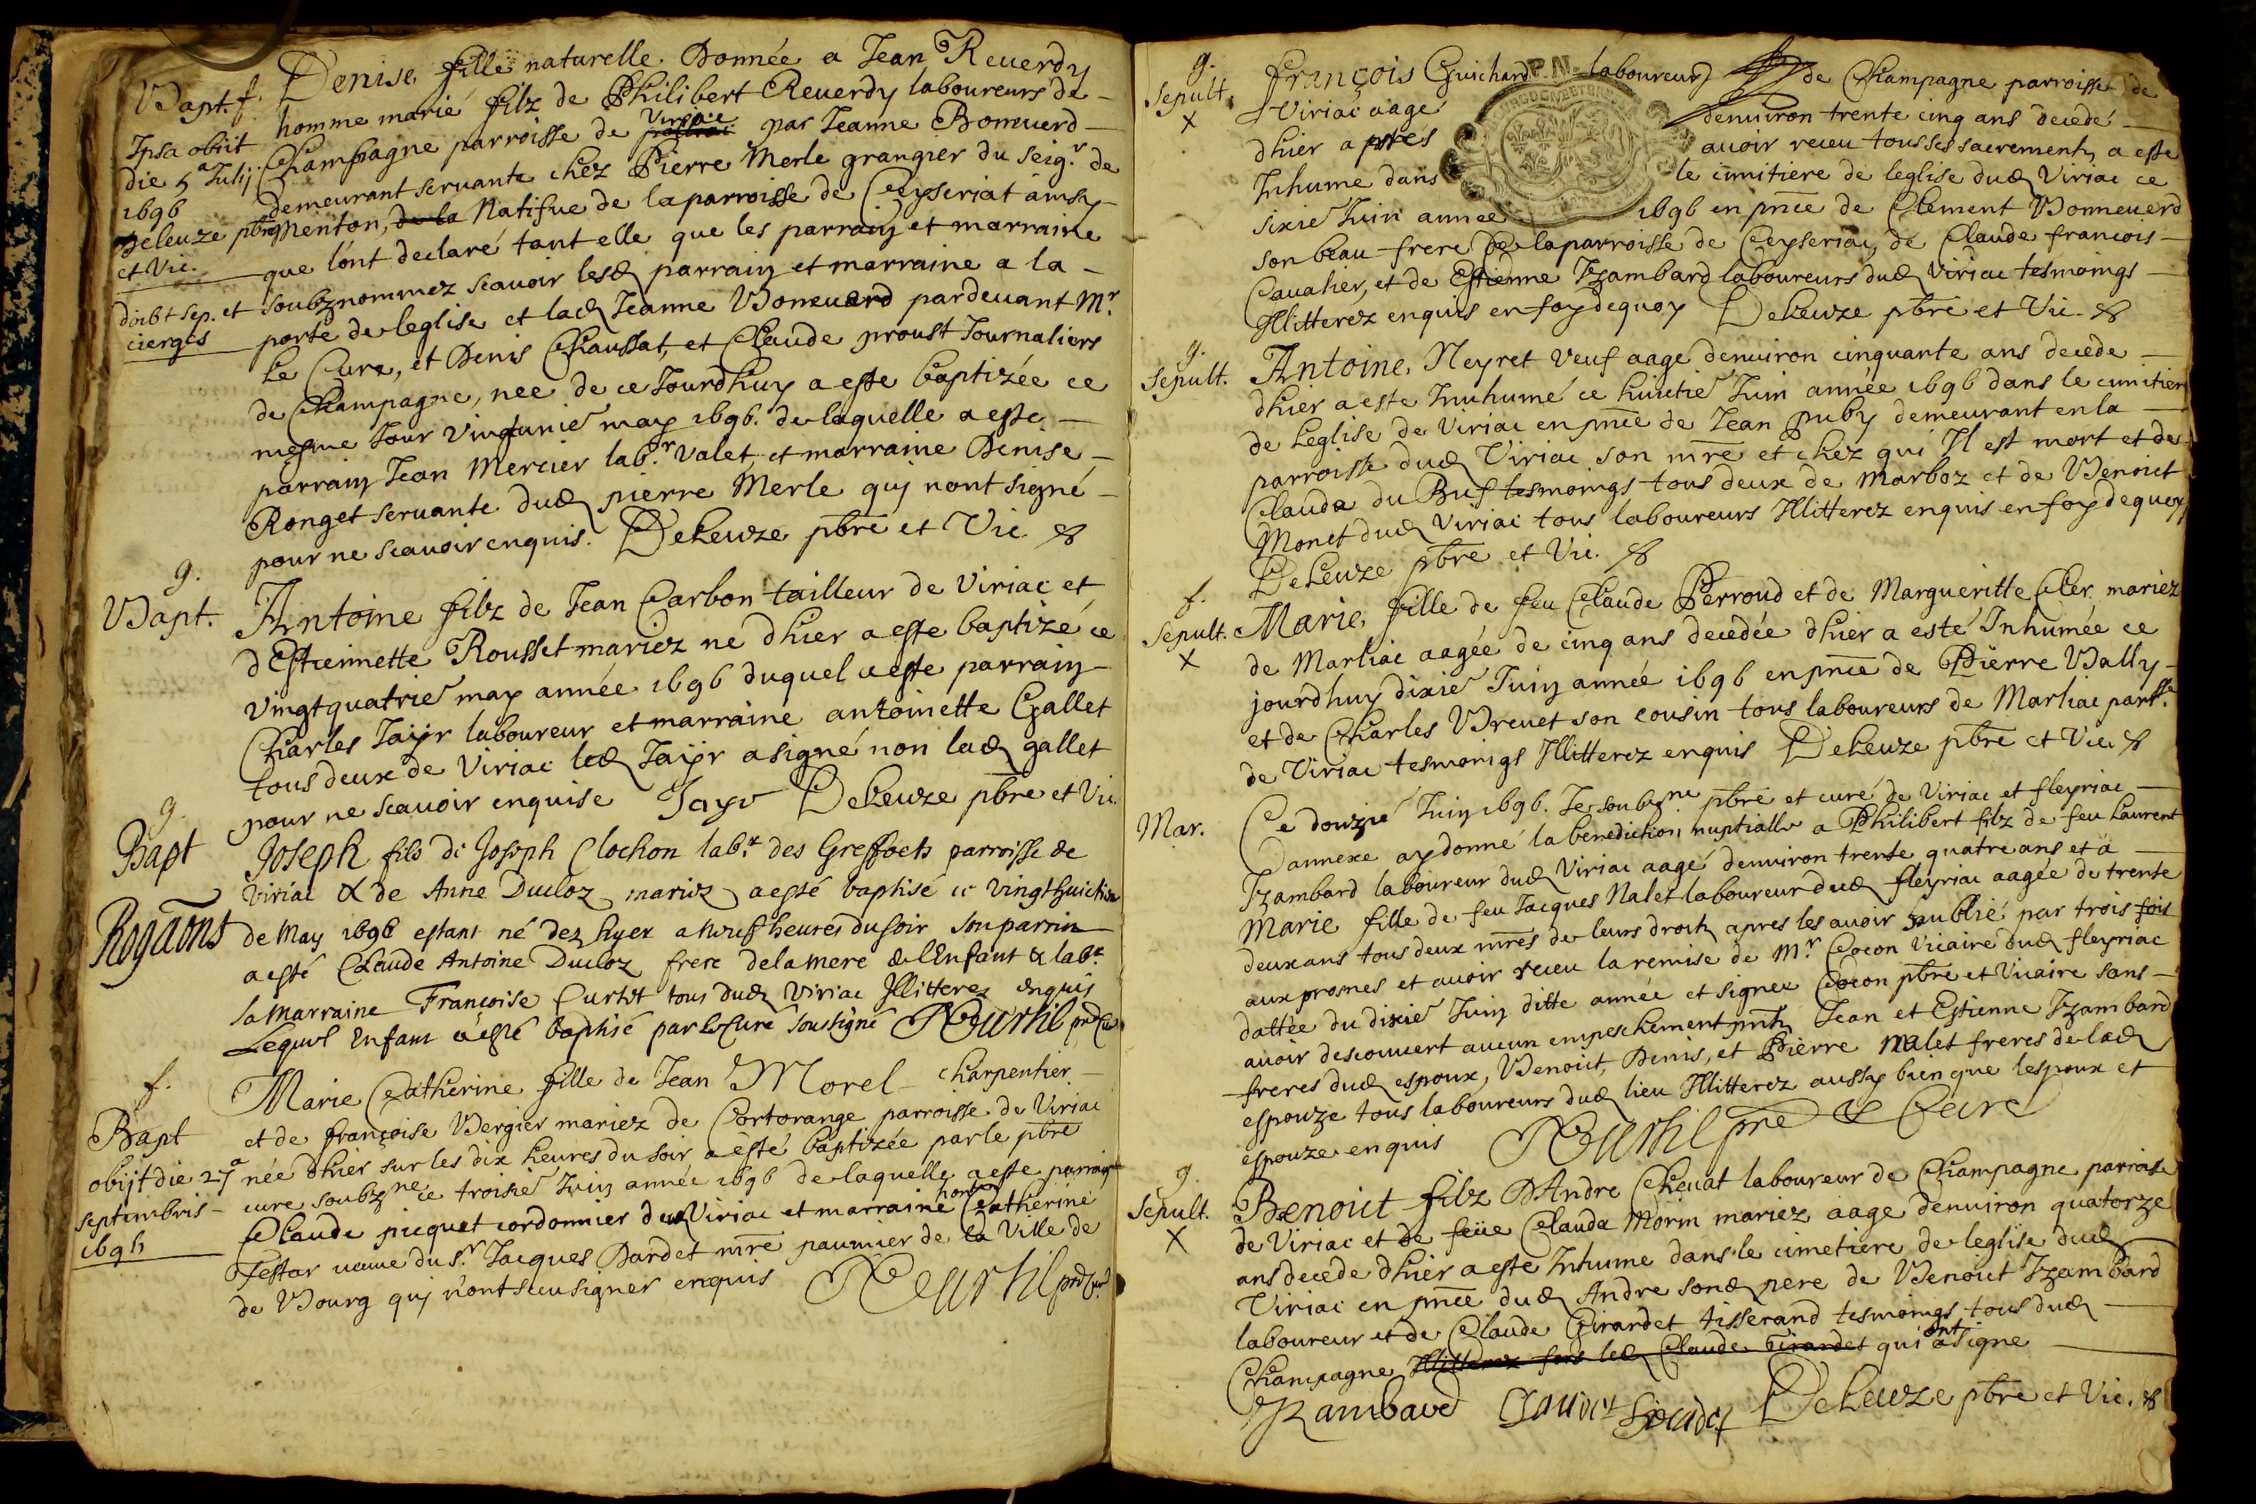 Bapt. f.
Ipsa obiit
die 5a Julij
1696
Deleuze pbre
et Vic.
doibt sep. et
cierges
Denise fille naturelle Donnée a Jean Reuerdy
homme marié filz de Philibert Reuerdy laboureurs de
Champagne parroisse de Viriac par Jeanne Bonuerd
demeurant seruante chez Pierre Merle grangier du Seigr de
Menton, de la Natifue de la parroisse de Ceyseriat ainsy
que lónt declaré tant elle que les parrain et marraine
soubznommez scauoir lesd parrain et marraine a la
porte de leglise et lad Jeanne Boneuerd pardeuant Mr
Le Cure, et Denis Chaussat, et Claude proust Journaliers
de Champagne, nee de ce Jourdhuy a este baptizée ce
mesme Jour Vingtunie may 1696. de laquelle a este
parrain Jean Mercier labr Valet et marraine Denise
Ronget seruante dud pierre Merle quj nont signé
pour ne scauoir enquis. DeLeuze pbre et Vic.
g.
Bapt.
Antoine filz de Jean Carbon tailleur de Viriac et
dEstiennette Rousset mariez né dhier a este baptizé ce
vingtquatrie may année 1696 duquel a este parrain
Charles Jaijr laboureur et marraine antoinette Gallet
tous deux de Viriac led Jaijr a signé non lad gallet
pour ne scauoir enquise Jayr DeLeuze pbre et Vic.
g.
Bapt
Rogãons
Joseph fils de Joseph Clochon labr des Greffets parroisse de
Viriac & de Anne Ducloz mariez a esté baptisé ce Vingthuictie
de May 1696 estant né dez hyer a neuf heures du soir son parrin
a esté Claude Antoine Ducloz frere de la mere de lEnfant & labr
la marraine Françoise Curtet tous dud Viriac Illitterez enquis
Lequel Enfant a esté baptisé par le Curé soussigné
f.
Bapt
obijt die 27a
septembris
Marie Catherine fille de Jean Morel charpentier
et de françoise Bergier mariez de Cortorange parroisse de Viriac
née dhier sur les dix heures du soir a esté baptizée par le pbre
cure soubzne ce troisie Juin année 1696 de laquelle a este parrain
Claude picquet cordonnier dud Viriac et marraine Catherine
Testar veuue du Sr Jacques Dardet mre paumier de la Ville de
de Bourg quj nont sceu signer enquis
g.
Sepult.
X
François Guichard laboureur de Champagne parroisse de
Viriac aagé denuiron trente cinq ans decedé
dhier apres auoir receu tous ses sacrements a este
Inhume dans le cimitiere de leglise dud Viriac ce
sixie Juin annee 1696 en pnce de Clement Bonneuerd
son beau-frere de la parroisse de Ceyseriac, de Claude francois
Caualier, et de Estienne Izambard laboureurs dud Viriac tesmoings
Illitterez enquis en foy dequoy DeLeuze pbre et Vic.
g.
Sepult.
Antoine Neyret veuf aage denuiron cinquante ans decede
dhier a este Innhumé ce huictie Juin année 1696 dans le cimitier
de Leglise de Viriac en pnce de Jean puby demeurant en la
parroisse dud Viriac son mre et chez qui Il est mort et de
Claude du Buf tesmoings tous deux de Marboz et de Benoict
Monet dud Viriac tous laboureurs Illitterez enquis en foy dequoy
DeLeuze pbre et Vic.
f.
Sepult.
X
Marie fille de feu Claude Perroud et de Margueritte Cler mariez
de Marliac aagée de cinq ans decedée dhier a esté Inhumée ce
jourdhuy dixie Juin année 1696 en pnce de Pierre Bally
et de Charles Breuet son cousin tous laboureurs de Marliac parsse
de Viriac tesmoings Illitterez enquis DeLeuze pbre et Vic.
Mar.
Ce douzie Juin 1696. Je soubzne pbre et curé de Viriac et fleyriac
annexe ay donné la benediction nuptialle a Philibert filz de feu Laurent
Izambard laboureur dud Viriac aagé denuiron trente quatre ans et a
Marie fille de feu Jacques Nalet laboureur dud fleyriac aagée de trente
deux ans tous deux mres de leurs droits apres les auoir publié par trois fois
aux prosnes et auoir receu la remise de Mr Cocon Vicaire dud fleyriac
dattée du dixie Juin ditte année et signee Cocon pbre et Vicaire sans
auoir descouuert aucun empeschement pnts Jean et Estienne Izambard
freres dud espoux, Benoict, Denis, et Pierre Nalet freres de lad
espouze tous laboureurs dud lieu Illitterez aussy bien que lespoux et
espouze enquis
g.
Sepult.
X
Benoict filz DAndre Cheuat laboureur de Champagne parroisse
de Viriac et de feüe Clauda Morin mariez aage denuiron quatorze
ans decede dhier a este Inhume dans le cimetiere de leglise dud
Viriac en pnce dud Andre sond pere de Benoict Izambard
laboureur et de Claude Girardet tisserand tesmoings tous dud
Champagne Illitterez fors led Claude Girardet qui ont signe
DeLeuze pbre et Vic.